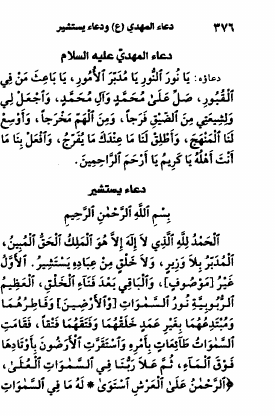 ٣٧٦ دعاء المهدي (ع) ودعاء يستشير
دعاء المهديّ عليه السلام
دعاؤه: يَا نُورَ ٱلنُّورِ يَا مُدَبِّرَ ٱلْأُمُورِ، يَا بَاعِثَ مَنْ فِي
ٱلْقُبُورِ، صَلِّ عَلَىٰ مُحَمَّدٍ وَآلِ مُحَمَّدٍ، وَٱجْعَلْ لِي
وَلِشِيعَتِي مِنَ ٱلضِّيقِ فَرَجاً، وَمِنَ ٱلْهَمِّ مَخْرَجاً، وَأَوْسِعْ
لَنَا ٱلْمَنْهَجَ، وَأَطْلِقْ لَنَا مَا عِنْدَكَ مَا يُفَرِّجُ، وَٱفْعَلْ بِنَا مَا
أَنْتَ أَهْلُهُ يَا كَرِيمُ يَا أَرْحَمَ ٱلرَّاحِمِينَ.
دعاء يستشير
بِسْمِ ٱللَّهِ ٱلرَّحْمٰنِ ٱلرَّحِيمِ
ٱلْحَمْدُ لِلَّهِ ٱلَّذِي لاَ إِلَهَ إِلاَّ هُوَ ٱلْمَلِكُ ٱلْحَقُّ ٱلْمُبِينُ،
ٱلْمُدَبِّرُ بِلاَ وَزِيرٍ، وَلاَ خَلْقٍ مِنْ عِبَادِهِ يَسْتَشِيرُ. ٱلأَوَّلُ
غَيْرُ [مَوْصُوفٍ]، وَٱلْبَاقِي بَعْدَ فَنَاءِ ٱلْخَلْقِ، ٱلْعَظِيمُ
ٱلرُّبُوبِيَّةِ نُورُ ٱلسَّمٰوَاتِ [وَٱلأَرَضِينَ] وَفَاطِرُهُمَا
وَمُبْتَدِعُهُمَا بِغَيْرِ عَمَدٍ خَلَقَهُمَا وَفَتَقَهُمَا فَتْقاً، فَقَامَتِ
ٱلسَّمٰوَاتُ طَائِعَاتٍ بِأَمْرِهِ وَٱسْتَقَرَّتِ ٱلأَرَضُونَ بِأَوْتَادِهَا
فَوْقَ ٱلْمَاءِ، ثُمَّ عَلاَ رَبُّنَا فِي ٱلسَّمٰوَاتِ ٱلْعُلَىٰ،
﴿ٱلرَّحْمٰنُ عَلَىٰ ٱلْعَرْشِ ٱسْتَوَىٰ * لَهُ مَا فِي ٱلسَّمٰوَاتِ